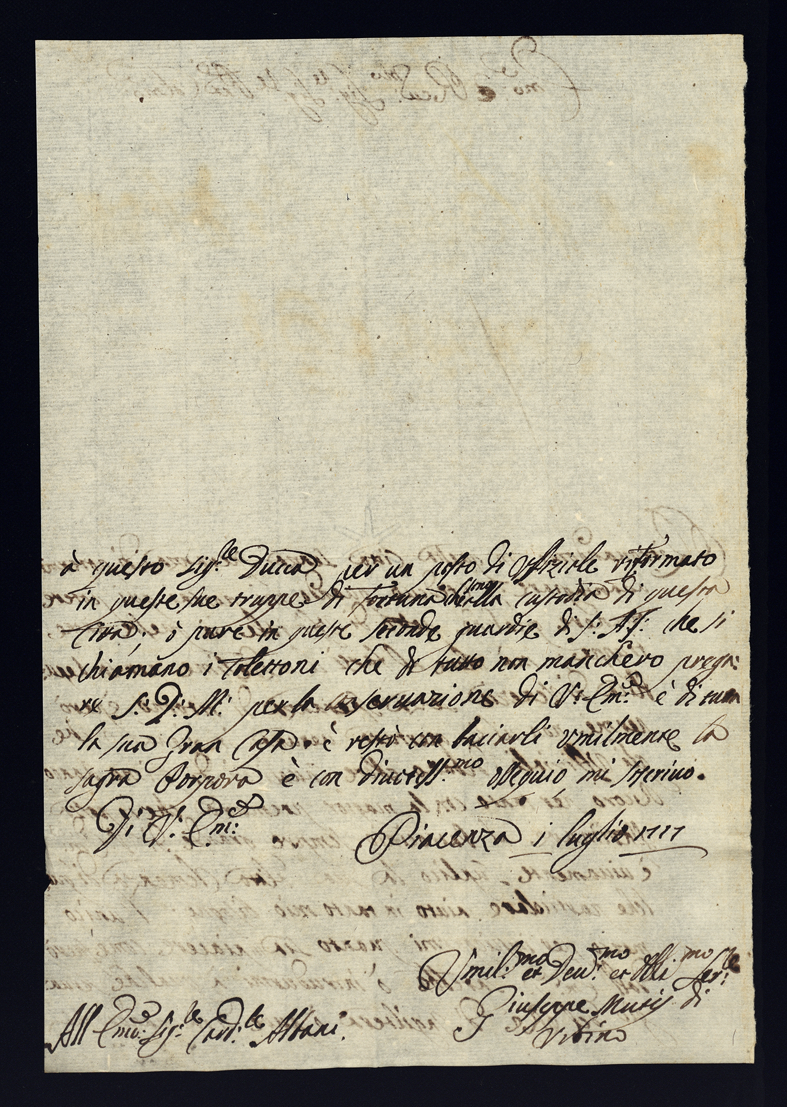 à questo Sig.re Duca per un posto di Ufiziale riformato
in queste sue truppe di fortuna alla custodia di questa
Città, ò pure in queste seconde guardie di S: A: S: che si
chiamano i Colettoni che di tutto non mancherò prega:
re S: D: M: per la conservazione di V: Em:za è di tutta
la sua Gran Casa è resto con baciarli umilmente la
sagra Porpora è con ossequio mi soscrivo.
Di V: Em:za
Piacenza i luglio 1717
Umil:mo et Dev:mo et Obli:mo Ser:re
Giuseppe Mutij di
Urbino
All Emo: Sig:re Card:le Albani.